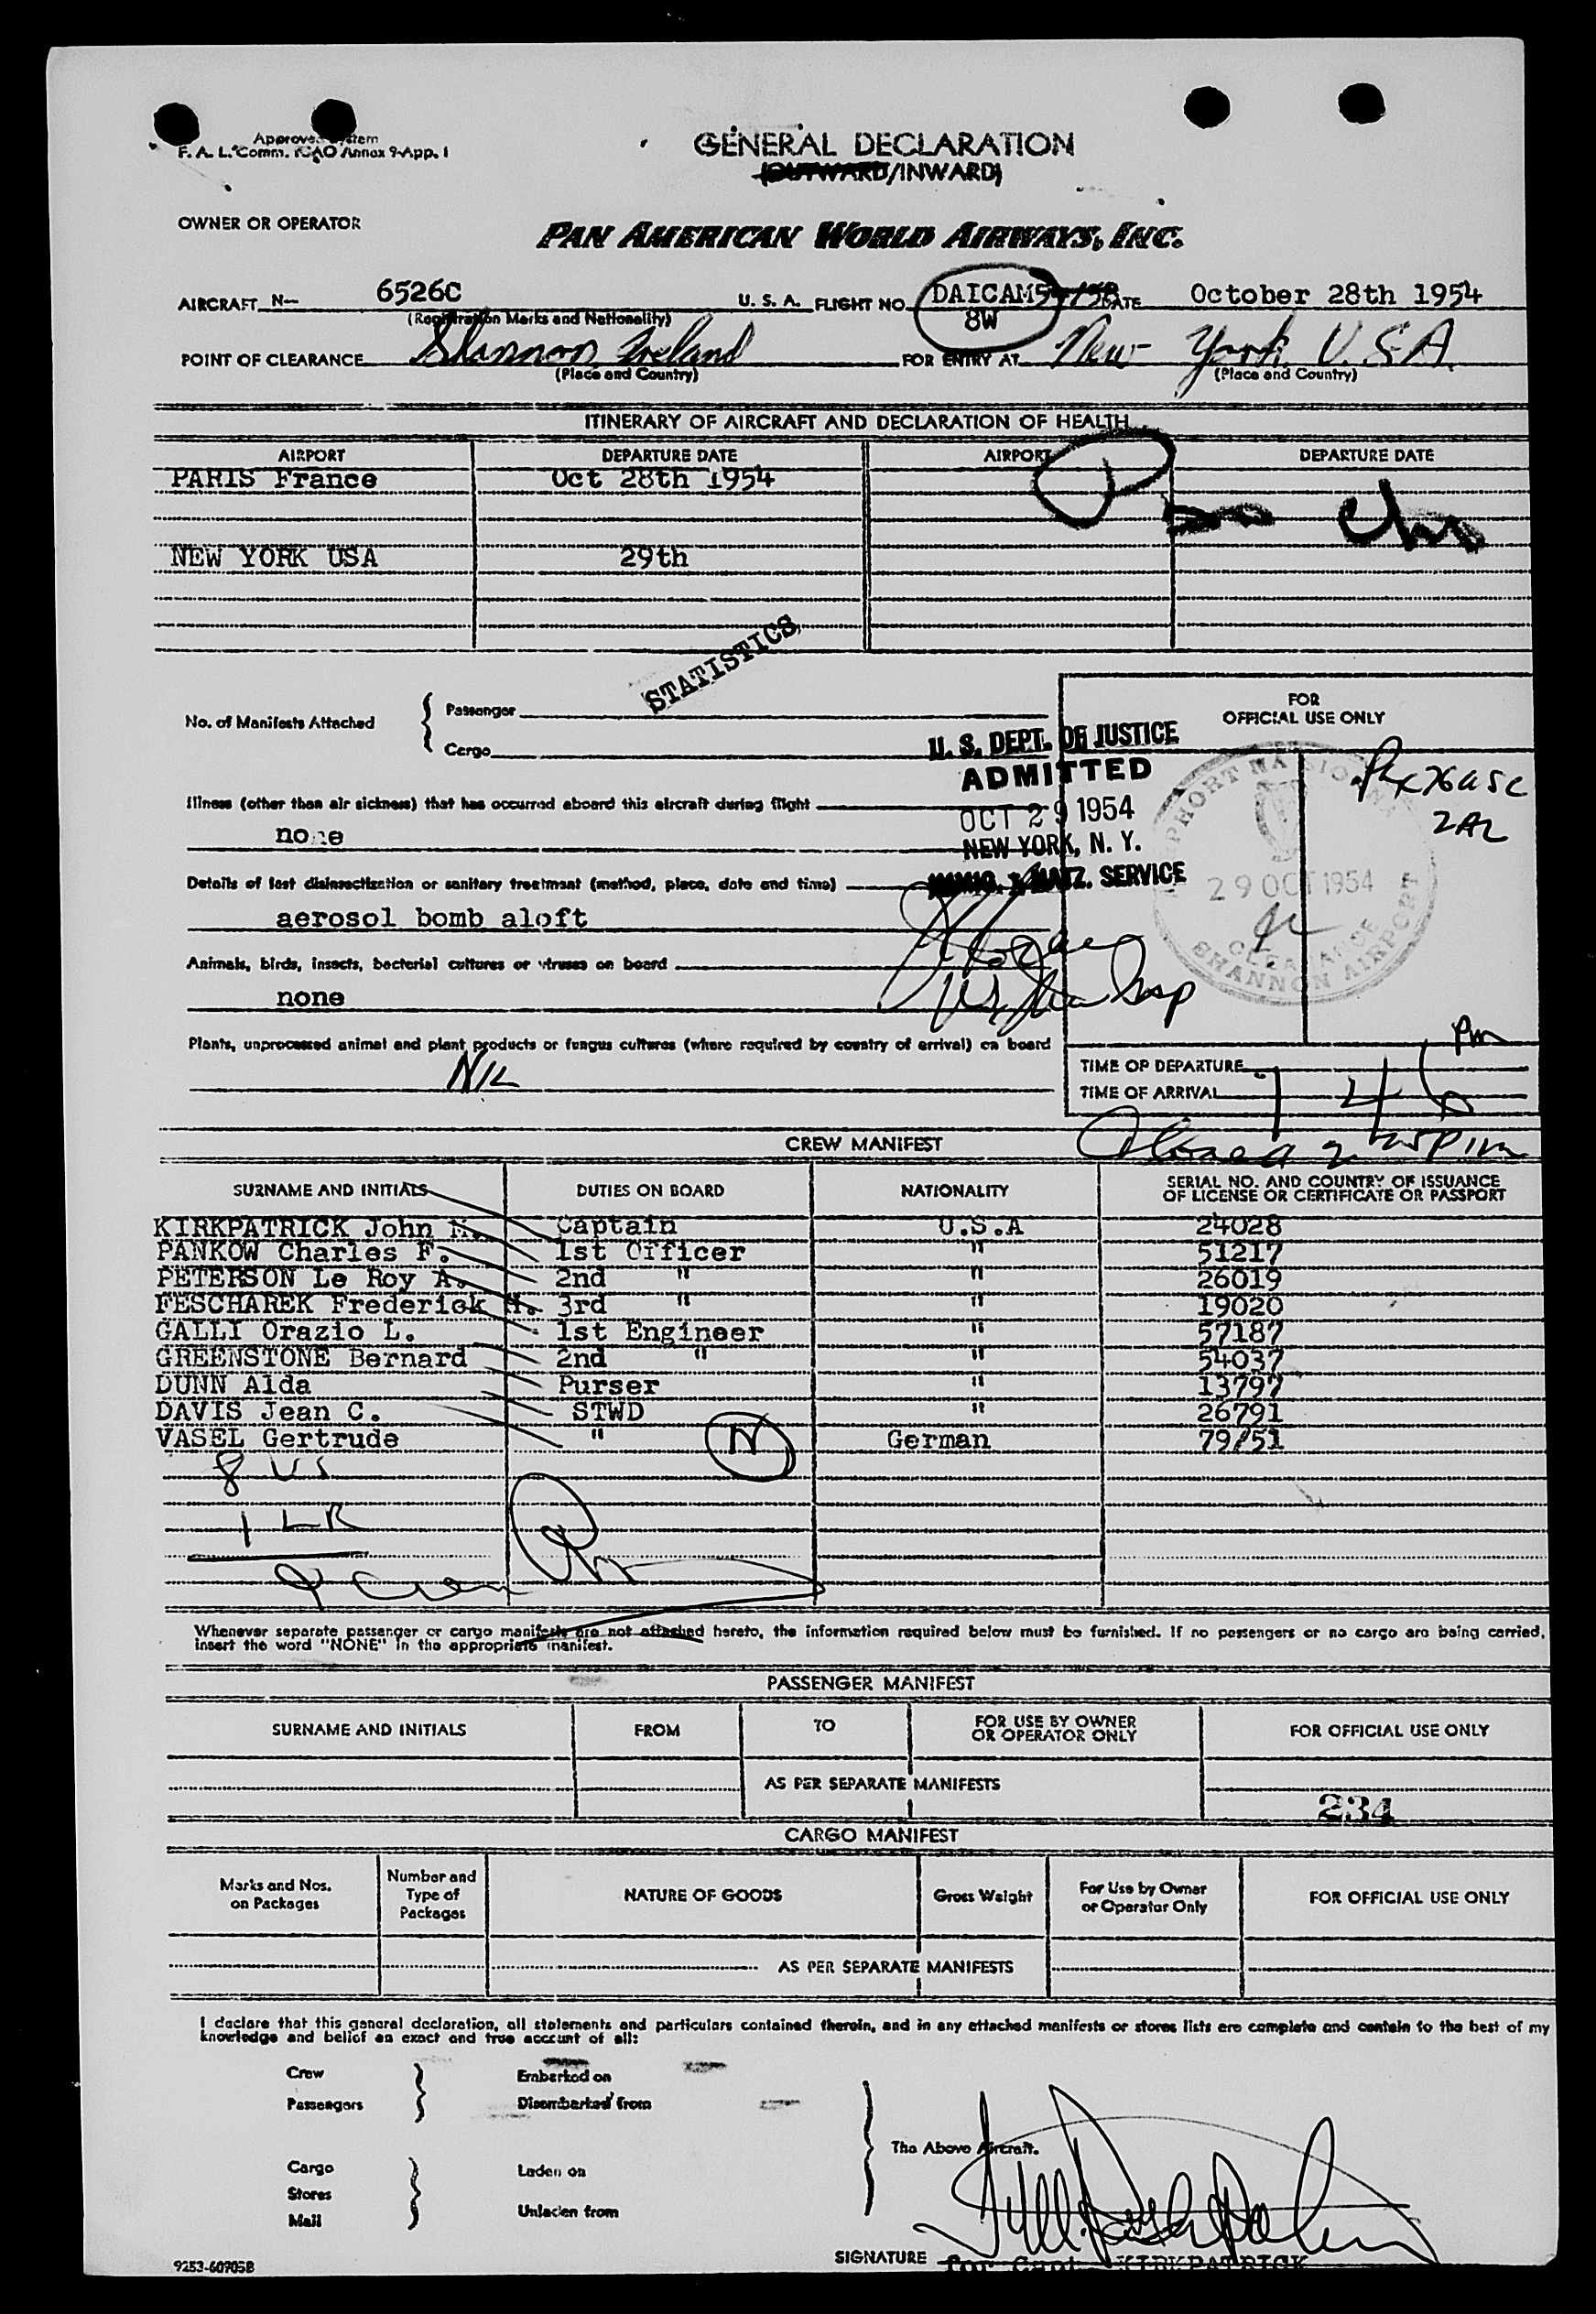 Approved System
F. A. L. Comm. ICAO Annex 9-App. 1
GENERAL DECLARATION
(OUTWARD/INWARD)
OWNER OR OPERATOR
PAN AMERICAN WORLD AIRWAYS, INC.
AIRCRAFT N- 6526C U. S. A. FLIGHT NO. DAICAM DATE October 28th 1954
(Registration Marks and Nationality) 8W
POINT OF CLEARANCE Shannon Ireland FOR ENTRY AT New York U.S.A.
(Place and Country) (Place and Country)
ITINERARY OF AIRCRAFT AND DECLARATION OF HEALTH
AIRPORT DEPARTURE DATE AIRPORT DEPARTURE DATE
PARIS France Oct 28th 1954
NEW YORK USA 29th
STATISTICS
No. of Manifests Attached { Passenger
Cargo
FOR
OFFICIAL USE ONLY
U. S. DEPT. OF JUSTICE
ADMITTED
OCT 29 1954
NEW YORK, N. Y.
IMMIG. & NATZ. SERVICE
29 OCT 1954
CLEARANCE
SHANNON AIRPORT
Illness (other than air sickness) that has occurred aboard this aircraft during flight
none
Details of last disinsectization or sanitary treatment (method, place, date and time)
aerosol bomb aloft
Animals, birds, insects, bacterial cultures or viruses on board
none
Plants, unprocessed animal and plant products or fungus cultures (where required by country of arrival) on board
NIL
Pm
TIME OF DEPARTURE
TIME OF ARRIVAL
CREW MANIFEST
SURNAME AND INITIALS DUTIES ON BOARD NATIONALITY SERIAL NO. AND COUNTRY OF ISSUANCE OF LICENSE OR CERTIFICATE OR PASSPORT
KIRKPATRICK John H. Captain U.S.A 24028
PANKOW Charles F. 1st Officer " 51217
PETERSON Le Roy A. 2nd " " 26019
FESCHAREK Frederick H. 3rd " " 19020
GALLI Orazio L. 1st Engineer " 57187
GREENSTONE Bernard 2nd " " 54037
DUNN Alda Purser " 13797
DAVIS Jean C. STWD " 26791
VASEL Gertrude " N German 79/51
8 US
1 LR
9 Crew
Whenever separate passenger or cargo manifests are not attached hereto, the information required below must be furnished. If no passengers or no cargo are being carried,
insert the word "NONE" in the appropriate manifest.
PASSENGER MANIFEST
SURNAME AND INITIALS FROM TO FOR USE BY OWNER OR OPERATOR ONLY FOR OFFICIAL USE ONLY
AS PER SEPARATE MANIFESTS
234
CARGO MANIFEST
Marks and Nos. on Packages Number and Type of Packages NATURE OF GOODS Gross Weight For Use by Owner or Operator Only FOR OFFICIAL USE ONLY
AS PER SEPARATE MANIFESTS
I declare that this general declaration, all statements and particulars contained therein, and in any attached manifests or stores lists are complete and contain to the best of my
knowledge and belief an exact and true account of all:
Crew Embarked on
Passengers Disembarked from
The Above Aircraft.
Cargo Laden on
Stores
Mail Unladen from
SIGNATURE for Capt KIRKPATRICK
9253-60705B